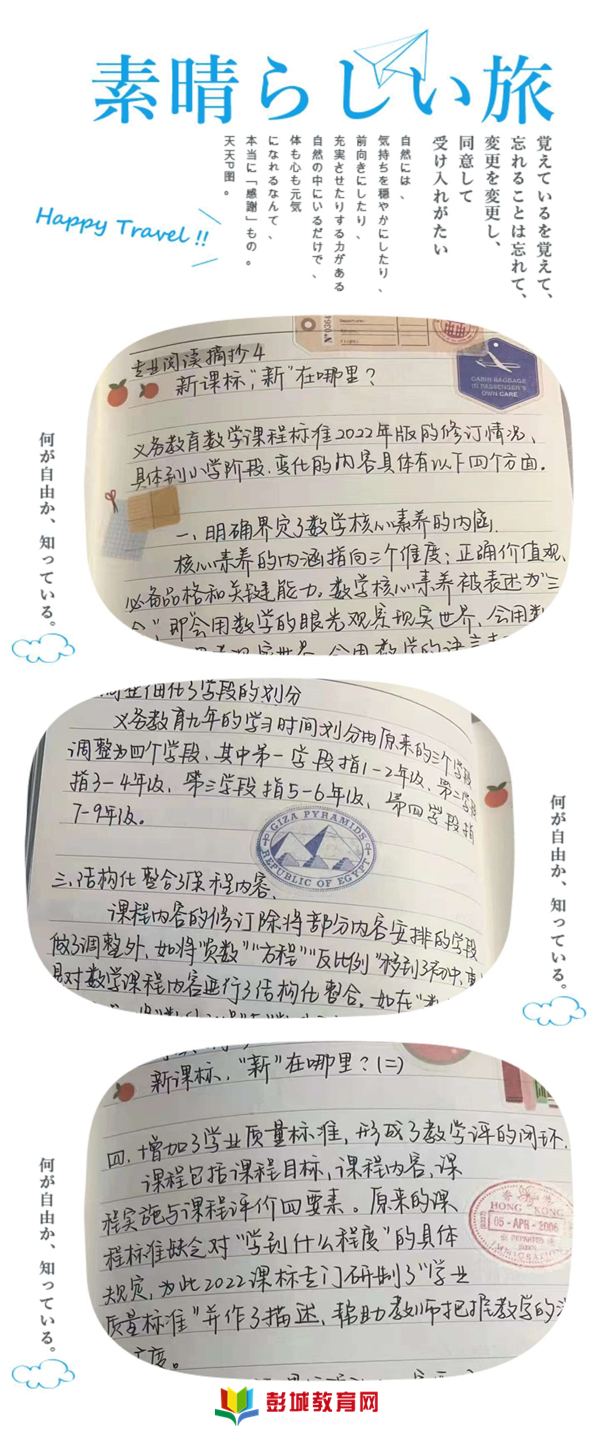 素晴らしい旅
覚えているを覚えて、
忘れることは忘れて、
変更を変更し、
同意して
受け入れがたい
自然には、
気持ちを穏やかにしたり、
前向きにしたり、
充実させたりする力がある
自然の中にいるだけで、
体も心も元気
になれるなんて、
本当に「感謝」もの。
天天P图。
Happy Travel !!
何が自由か、知っている。
专业阅读摘抄4
新课标,“新”在哪里?
CABIN BAGGAGE
IN PASSENGER'S
OWN CARE
义务教育数学课程标准2022年版的修订情况、
具体到小学阶段.变化的内容具体有以下四个方面.
一.明确界定了数学核心素养的内涵.
核心素养的内涵指向三个维度:正确价值观、
必备品格和关键能力,数学核心素养被表述为“三
会”,即会用数学的眼光观察现实世界、会用数
会用数学的语言
细化了学段的划分
义务教育九年的学习时间划分由原来的三个学段
调整为四个学段、其中第一学段指1-2年级、第二学段
指3-4年级、第三学段指5-6年级、第四学段指
7-9年级。
GIZA PYRAMIDS
REPUBLIC OF EGYPT
三.结构化整合了课程内容.
课程内容的修订除将部分内容安排的学段
做了调整外,如将“负数”“方程”“反比例”移到了初中,
是对数学课程内容进行了结构化整合.如在“
何が自由か、知っている。
新课标,“新”在哪里?(二)
四.增加了学业质量标准,形成了教学评的闭环.
课程包括课程目标,课程内容,课
程实施与课程评价四要素。原来的课
程标准缺乏对“学到什么程度”的具体
规定,为此2022课标专门研制了“学业
质量标准”并作了描述,帮助教师把握教学的深
度。
HONG KONG
05-APR-2006
IMMIGRATION
何が自由か、知っている。
彭城教育网